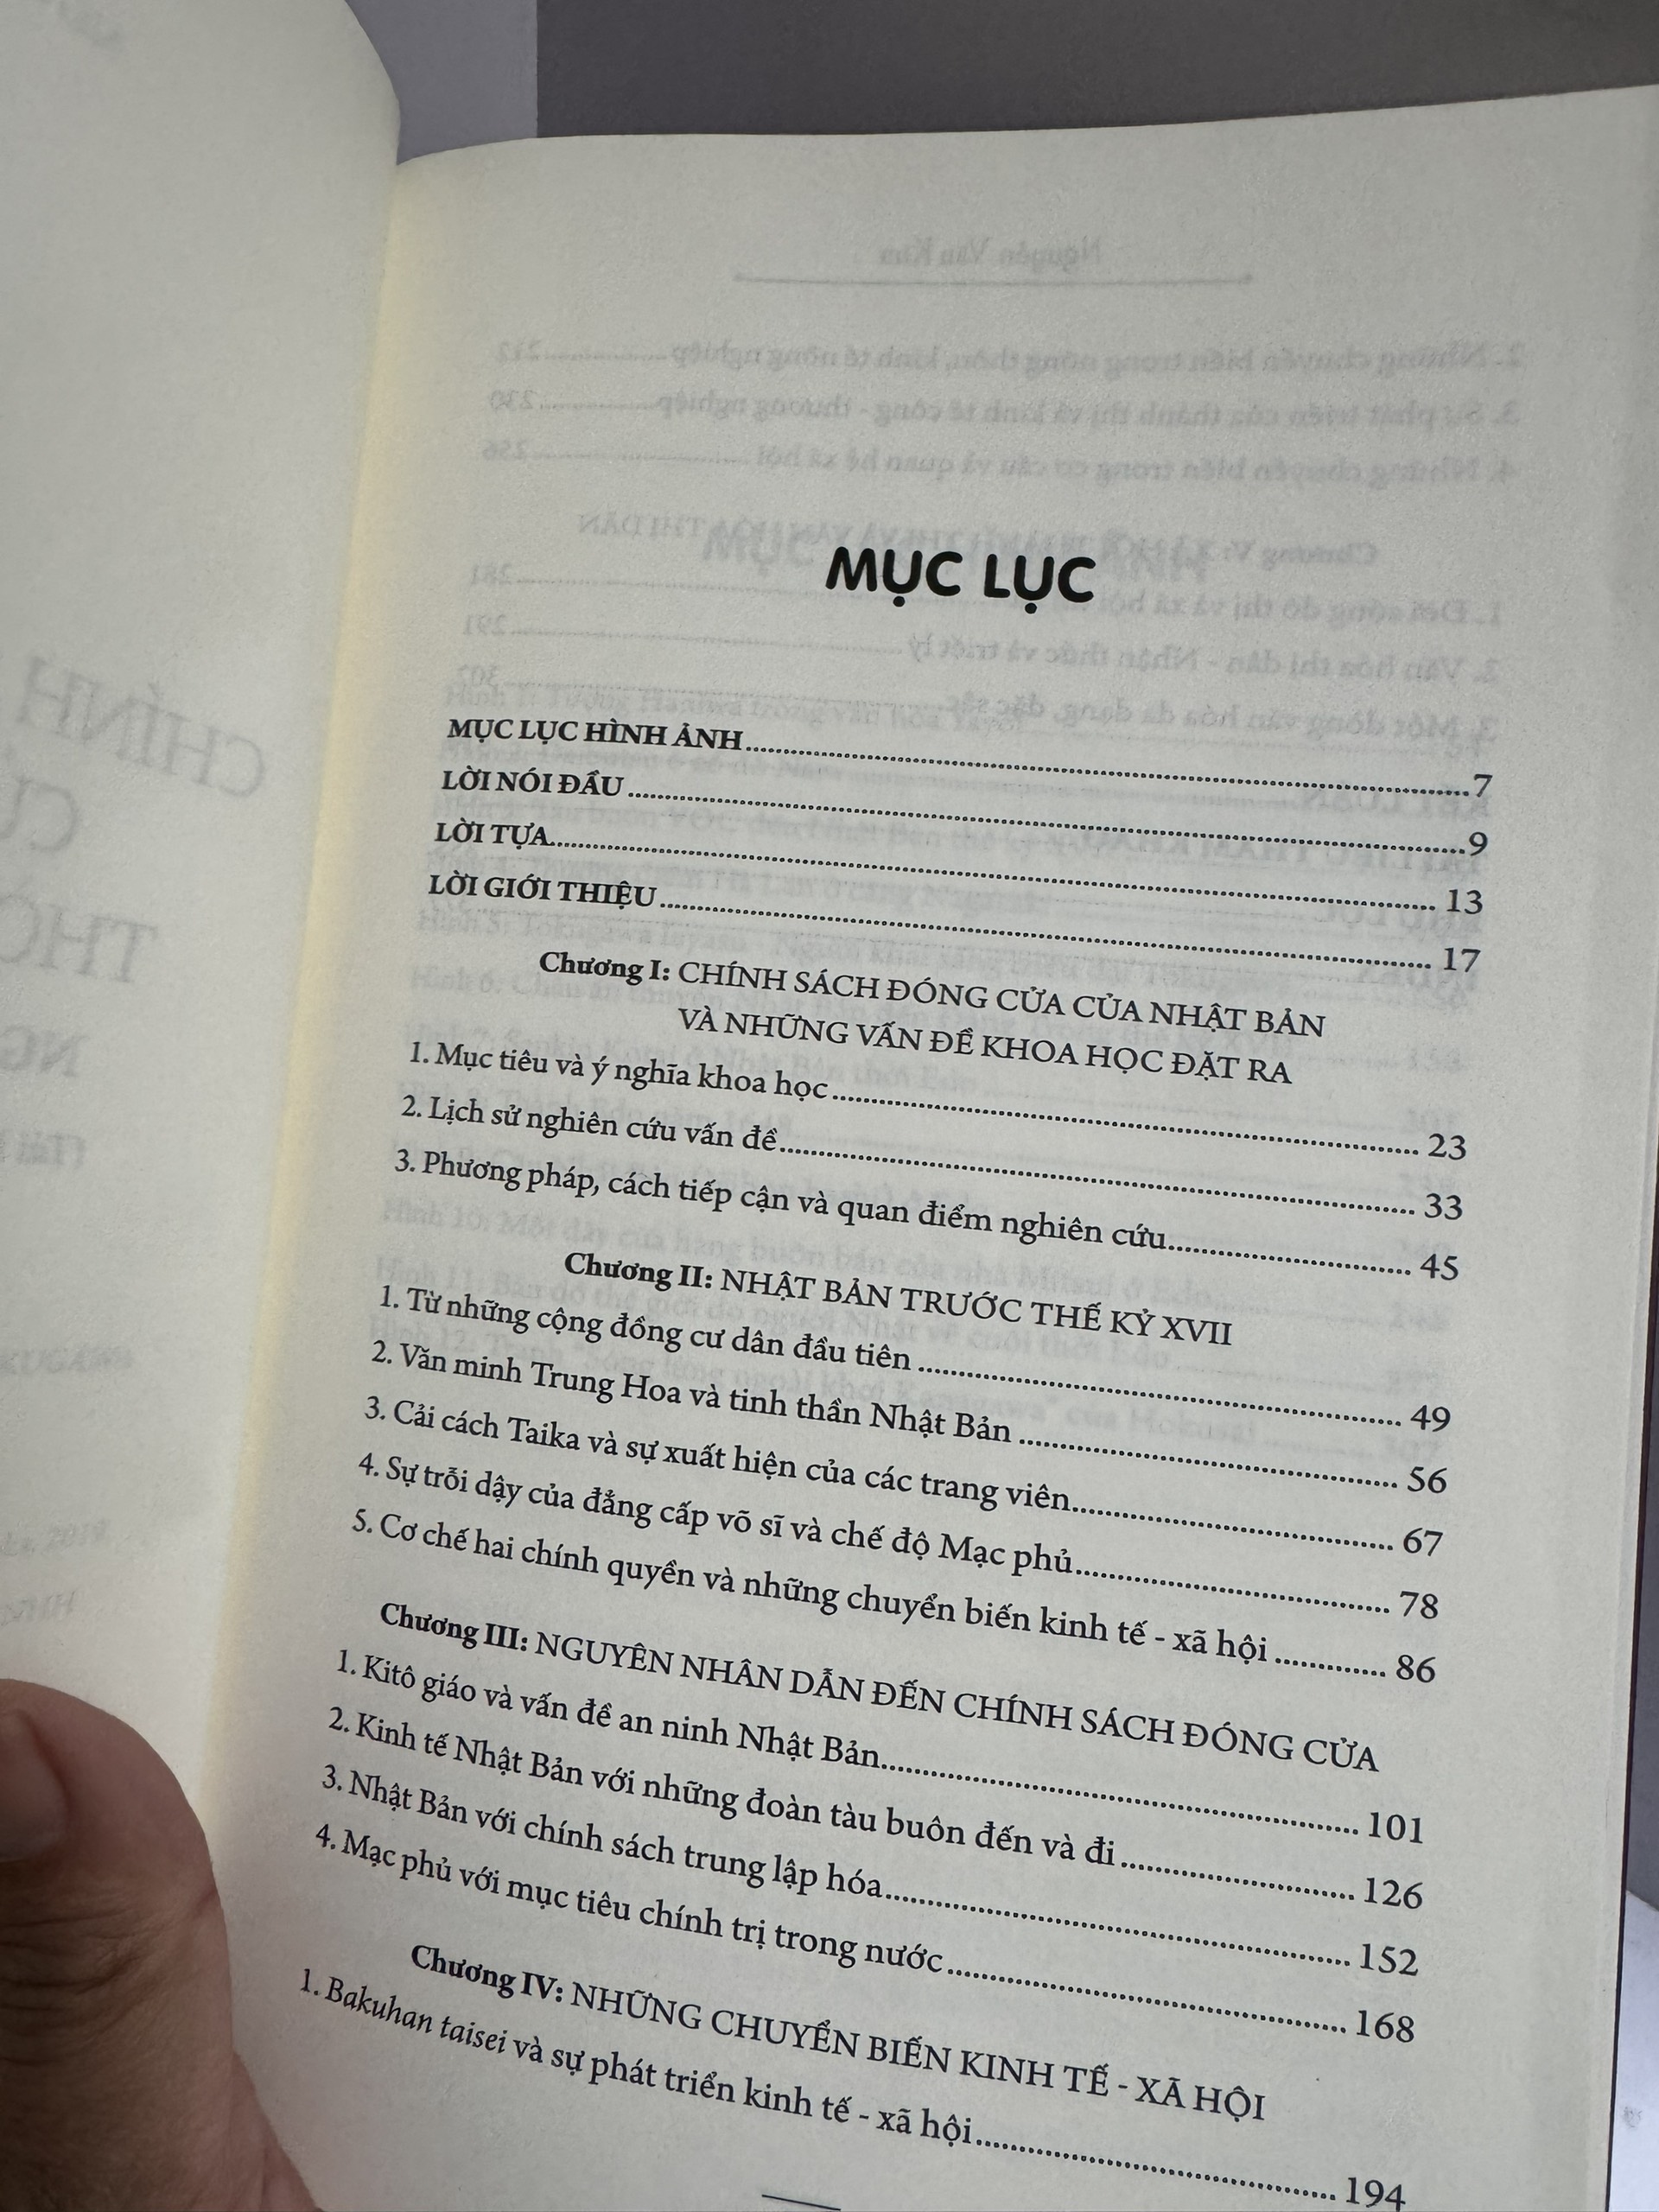 MỤC LỤC
MỤC LỤC HÌNH ẢNH........................7
LỜI NÓI ĐẦU........................9
LỜI TỰA........................13
LỜI GIỚI THIỆU........................17
Chương I: CHÍNH SÁCH ĐÓNG CỬA CỦA NHẬT BẢN
VÀ NHỮNG VẤN ĐỀ KHOA HỌC ĐẶT RA
1. Mục tiêu và ý nghĩa khoa học........................23
2. Lịch sử nghiên cứu vấn đề........................33
3. Phương pháp, cách tiếp cận và quan điểm nghiên cứu........................45
Chương II: NHẬT BẢN TRƯỚC THẾ KỶ XVII
1. Từ những cộng đồng cư dân đầu tiên........................49
2. Văn minh Trung Hoa và tinh thần Nhật Bản........................56
3. Cải cách Taika và sự xuất hiện của các trang viên........................67
4. Sự trỗi dậy của đẳng cấp võ sĩ và chế độ Mạc phủ........................78
5. Cơ chế hai chính quyền và những chuyển biến kinh tế - xã hội.............86
Chương III: NGUYÊN NHÂN DẪN ĐẾN CHÍNH SÁCH ĐÓNG CỬA
1. Kitô giáo và vấn đề an ninh Nhật Bản........................101
2. Kinh tế Nhật Bản với những đoàn tàu buôn đến và đi........................126
3. Nhật Bản với chính sách trung lập hóa........................152
4. Mạc phủ với mục tiêu chính trị trong nước........................168
Chương IV: NHỮNG CHUYỂN BIẾN KINH TẾ - XÃ HỘI
1. Bakuhan taisei và sự phát triển kinh tế - xã hội........................194